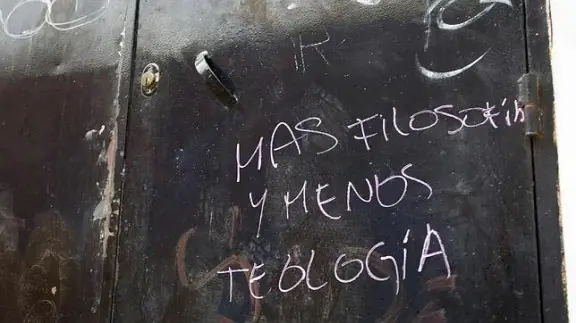 R
MAS FILOSOFíA
Y MENOS
TEOLOGíA